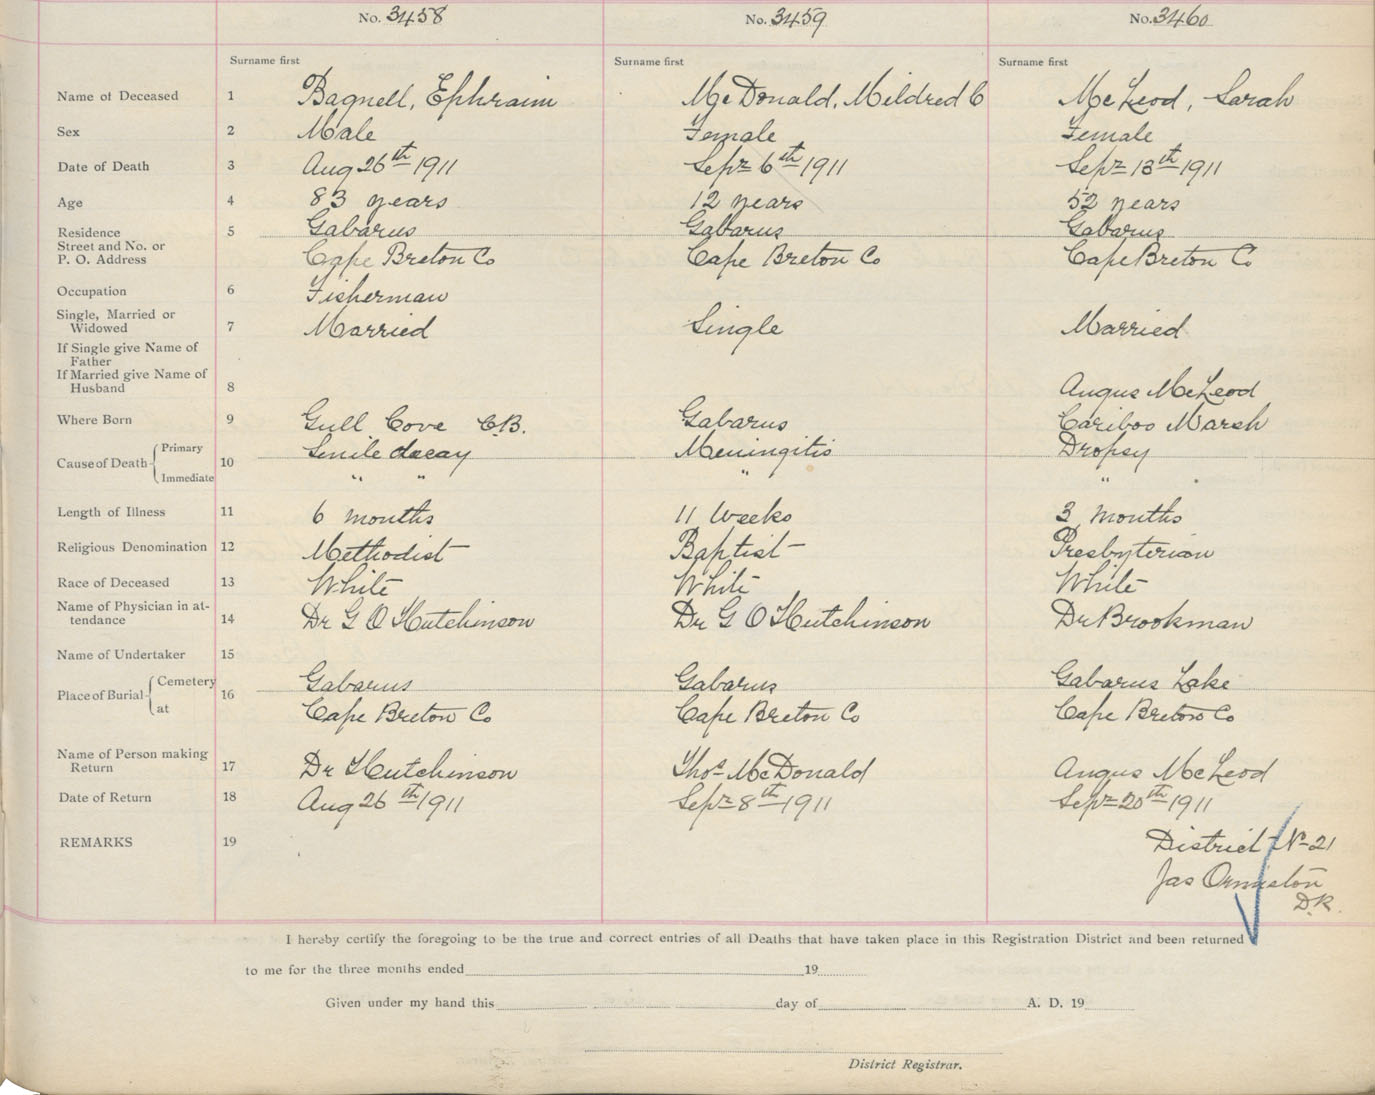 No. 3458 No. 3459 No. 3460
Surname first Surname first Surname first
Name of Deceased 1 Bagnell, Ephraim McDonald, Mildred C McLeod, Sarah
Sex 2 Male Female Female
Date of Death 3 Aug 26th 1911 Sept 6th 1911 Sept 13th 1911
Age 4 83 years 12 years 52 years
Residence 5 Gabarus Gabarus Gabarus
Street and No. or
P. O. Address Cape Breton Co Cape Breton Co Cape Breton Co
Occupation 6 Fisherman
Single, Married or
Widowed 7 Married Single Married
If Single give Name of
Father
If Married give Name of
Husband 8 Angus McLeod
Where Born 9 Gull Cove C.B. Gabarus Cariboo Marsh
Cause of Death Primary 10 Senile decay Meningitis Dropsy
Immediate " " " "
Length of Illness 11 6 months 11 weeks 3 months
Religious Denomination 12 Methodist Baptist Presbyterian
Race of Deceased 13 White White White
Name of Physician in at-
tendance 14 Dr G O Hutchinson Dr G O Hutchinson Dr Brookman
Name of Undertaker 15
Place of Burial Cemetery 16 Gabarus Gabarus Gabarus Lake
at Cape Breton Co Cape Breton Co Cape Breton Co
Name of Person making
Return 17 Dr Hutchinson Thos McDonald Angus McLeod
Date of Return 18 Aug 26th 1911 Sept 8th 1911 Sept 20th 1911
REMARKS 19 District No 21
Jas Ormiston
D.R.
I hereby certify the foregoing to be the true and correct entries of all Deaths that have taken place in this Registration District and been returned
to me for the three months ended 19
Given under my hand this day of A. D. 19
District Registrar.